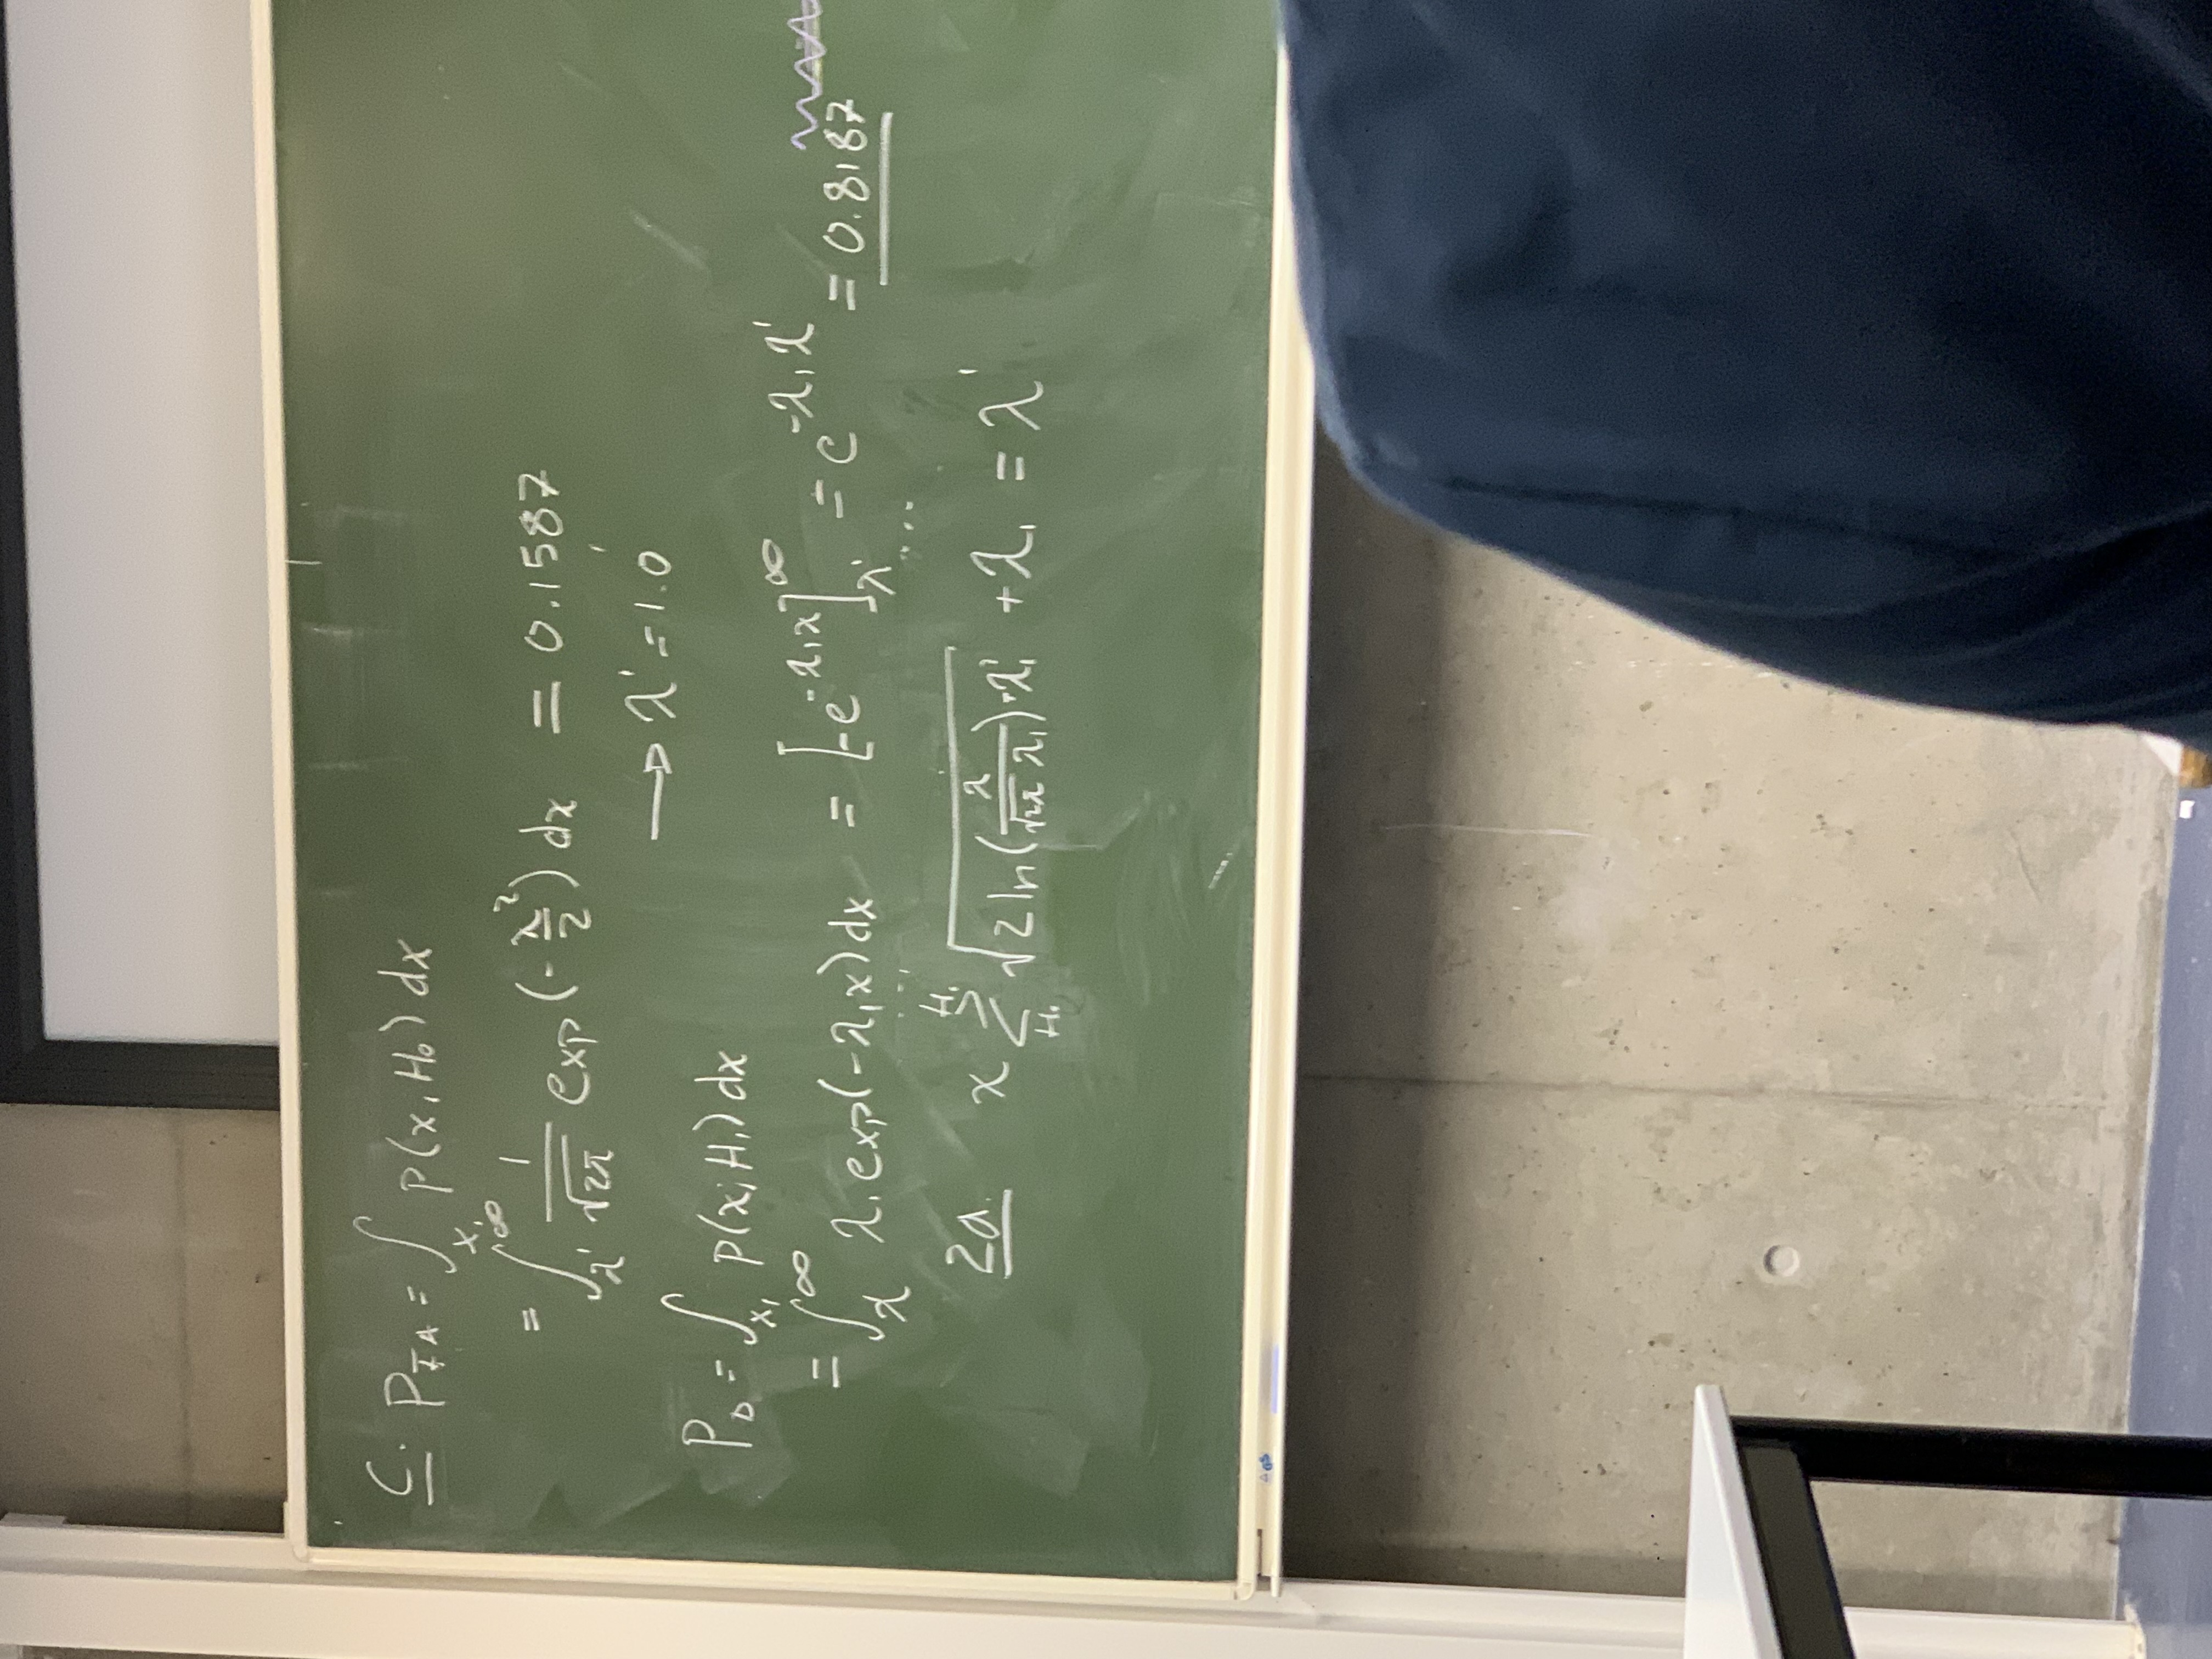 C. P_FA = ∫_{X₁} p(x; H₀) dx
= ∫_{λ'}^{∞} 1/√(2π) exp(-x²/2) dx = 0.1587
→ λ' = 1.0
P_D = ∫_{X₁} p(x; H₁) dx
= ∫_{λ'}^{∞} λ₁ exp(-λ₁x) dx = [-e^{-λ₁x}]_{λ'}^{∞} = e^{-λ₁λ'} = 0.8187
2a. x ≷_{H₀}^{H₁} √(2 ln(λ/(√(2π) λ₁)) + λ₁²) + λ₁ = λ'
GS